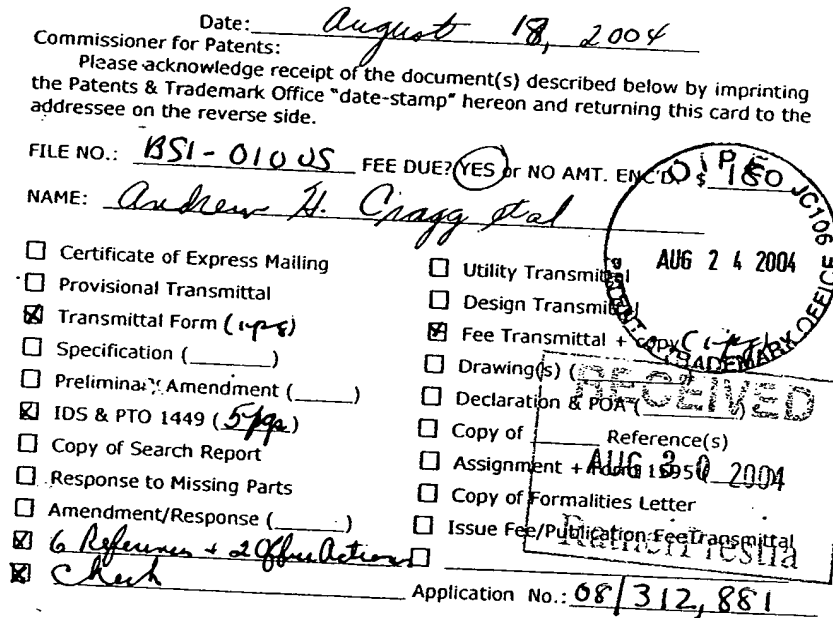 Date: August 18, 2004
Commissioner for Patents:
Please acknowledge receipt of the document(s) described below by imprinting
the Patents & Trademark Office "date-stamp" hereon and returning this card to the
addressee on the reverse side.
FILE NO.: BSI-010US FEE DUE? YES or NO AMT. ENC'D. $ 180
NAME: Andrew H. Cragg et al
Certificate of Express Mailing
Provisional Transmittal
Transmittal Form (1pg)
Specification (______)
Preliminary Amendment (______)
IDS & PTO 1449 (5pgs)
Copy of Search Report
Response to Missing Parts
Amendment/Response (______)
6 References + 2 Office Actions
Check
Utility Transmittal
Design Transmittal
Fee Transmittal + copy
Drawing(s) (
Declaration & POA (
Copy of ______ Reference(s)
Assignment + Form 1595 (
Copy of Formalities Letter
Issue Fee/Publication Fee Transmittal
Application No.: 08/312,881
OIPE JC106
AUG 24 2004
PATENT & TRADEMARK OFFICE
RECEIVED
AUG 30 2004
RatnerPrestia